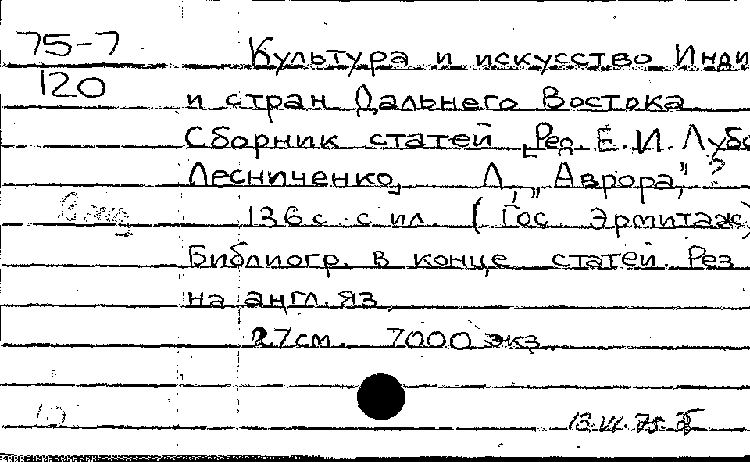 75-7
120
Культура и искусство Инди
и стран Дальнего Востока
Сборник статей [Ред. Е. И. Лубо
Лесниченко] Л, „Аврора,"
136с. с ил. (Гос Эрмитаж)
Библиогр. в конце статей. Рез
на англ. яз
27см. 7000 экз